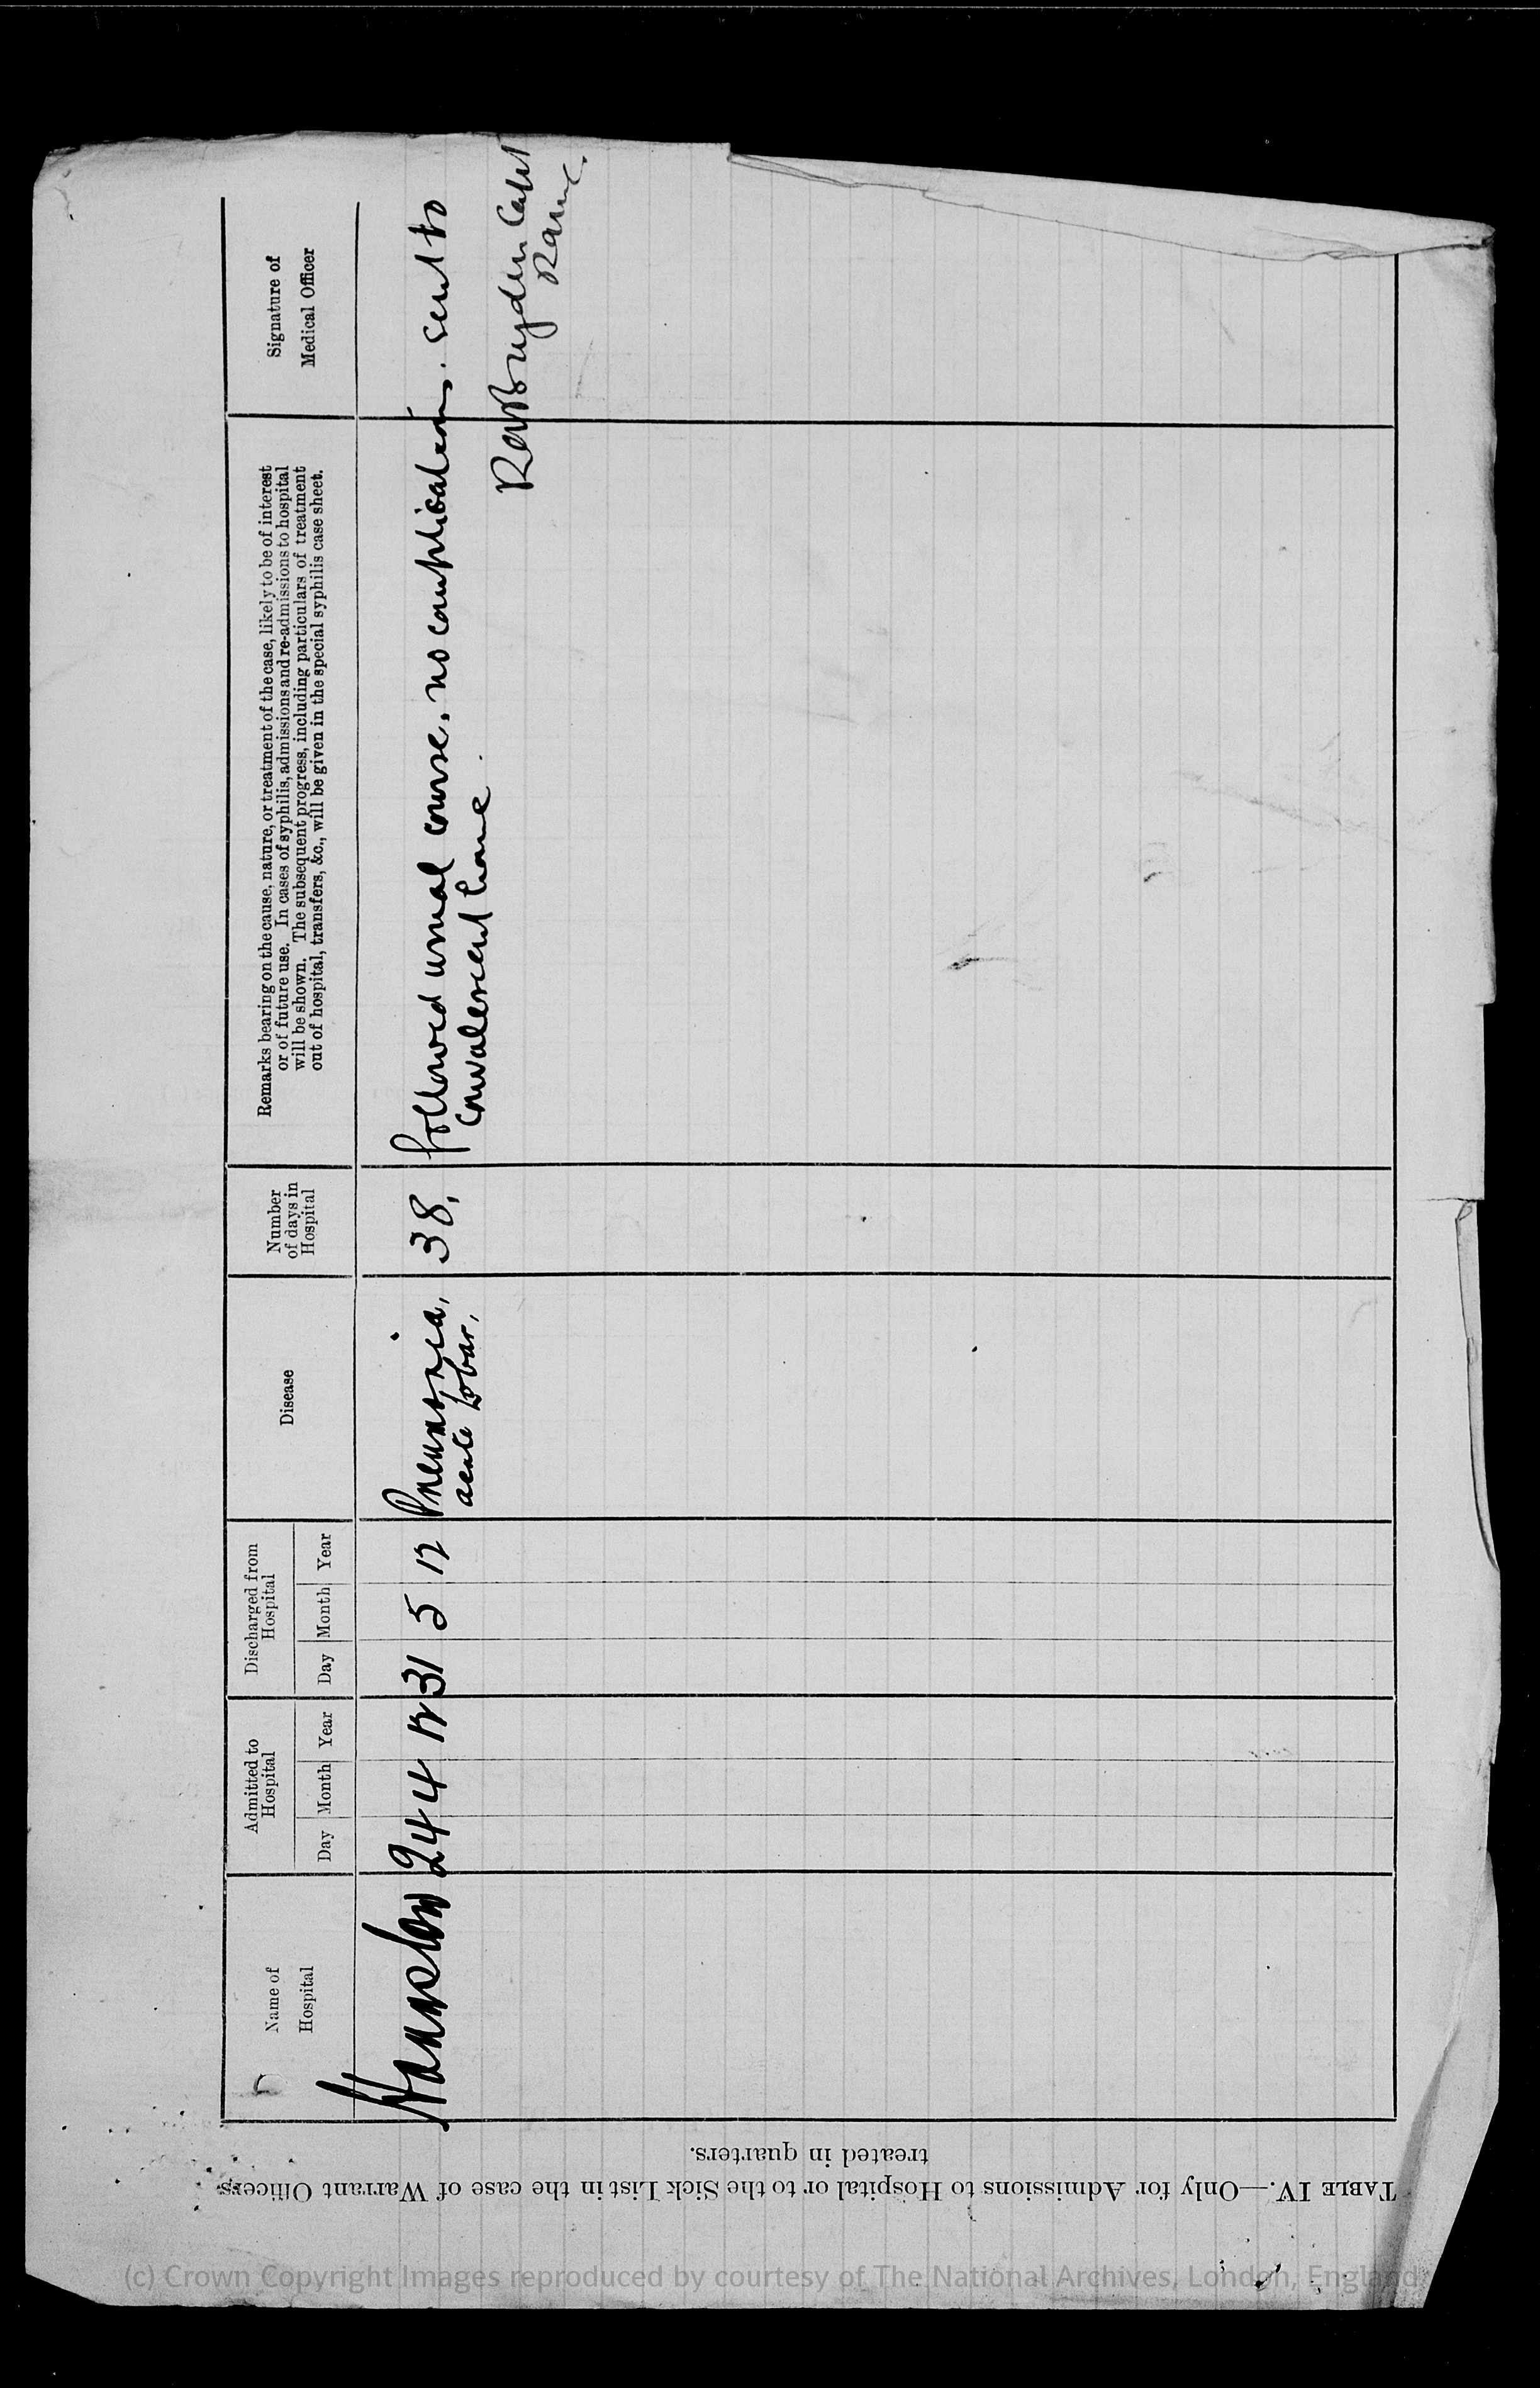 TABLE IV.—Only for Admissions to Hospital or to the Sick List in the case of Warrant Officers
treated in quarters.
Name of
Hospital
Admitted to
Hospital
Day Month Year
Discharged from
Hospital
Day Month Year
Disease
Number
of days in
Hospital
Remarks bearing on the cause, nature, or treatment of the case, likely to be of interest
or of future use. In cases of syphilis, admissions and re-admissions to hospital
will be shown. The subsequent progress, including particulars of treatment
out of hospital, transfers, &c., will be given in the special syphilis case sheet.
Signature of
Medical Officer
Hounslow 24 4 12 31 5 12 Pneumonia, 38, followed usual course, no complications. sent to
acute lobar, Convalescent home.
Capt
RAMC.
(c) Crown Copyright Images reproduced by courtesy of The National Archives, London, England